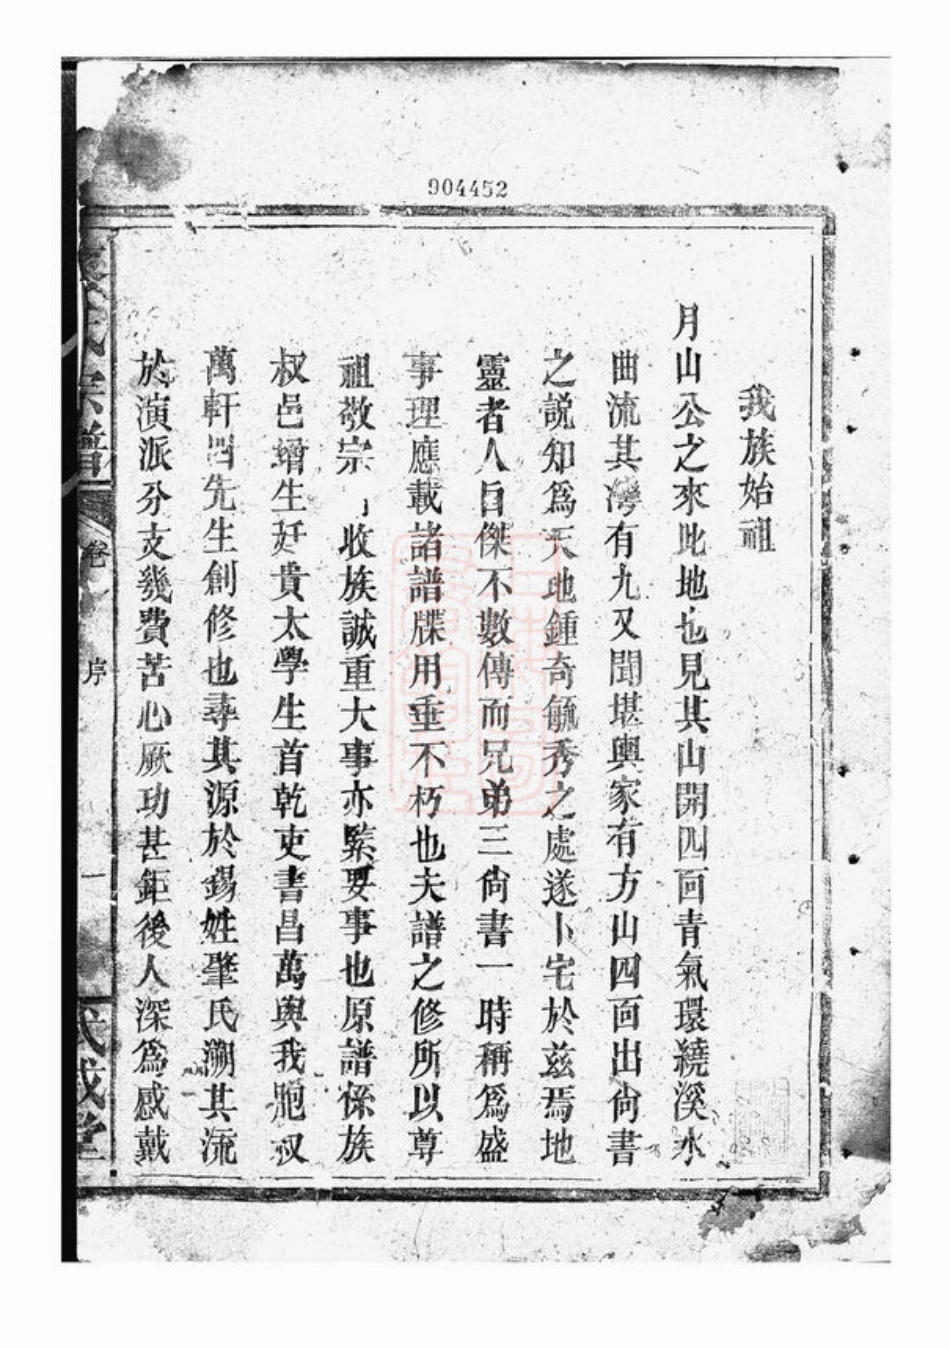 904452
我族始祖
月山公之來此地也見其山開四面青氣環繞溪水
曲流其灣有九又聞堪輿家有方山四面出尙書
之說知爲天地鍾奇毓秀之處遂卜宅於兹焉地
靈者人自傑不數傳而兄弟三尙書一時稱爲盛
事理應載諸譜牒用垂不朽也夫譜之修所以尊
祖敬宗收族誠重大事亦緊要事也原譜係族
叔邑增生好貴太學生首乾吏書昌萬與我胞叔
萬軒先生創修也尋其源於錫姓肇氏溯其流
於演派分支幾費苦心厥功甚鉅後人深爲感戴
氏宗譜
卷
序
一